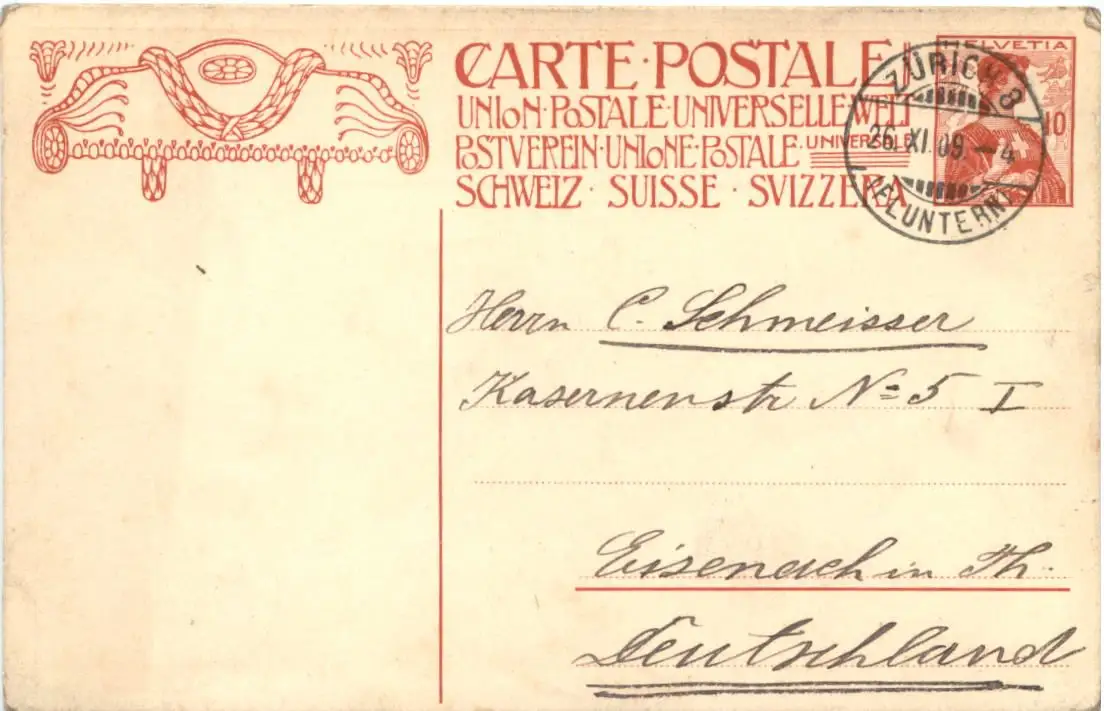 CARTE · POSTALE
UNION · POSTALE · UNIVERSELLE · WELT
POSTVEREIN · UNIONE · POSTALE · UNIVERSALE
SCHWEIZ · SUISSE · SVIZZERA
HELVETIA
10
ZÜRICH 8
26. XI. 09. — 4
(FLUNTERN)
Herrn C. Schmeisser
Kasernenstr No 5 I
Eisenach in Th.
Deutschland